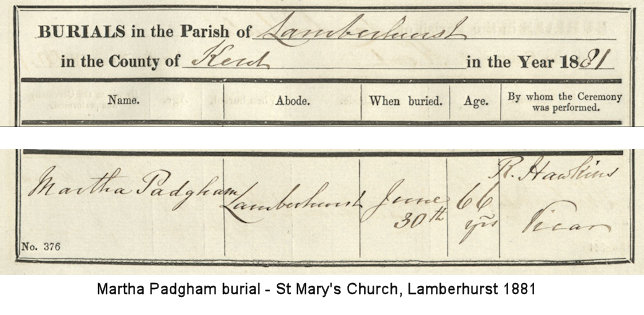 BURIALS in the Parish of Lamberhurst
in the County of Kent in the Year 1881
Name. Abode. When buried. Age. By whom the Ceremony
was performed.
Martha Padgham Lamberhurst June 66 R. Hawkins
30th yrs Vicar
No. 376
Martha Padgham burial - St Mary's Church, Lamberhurst 1881